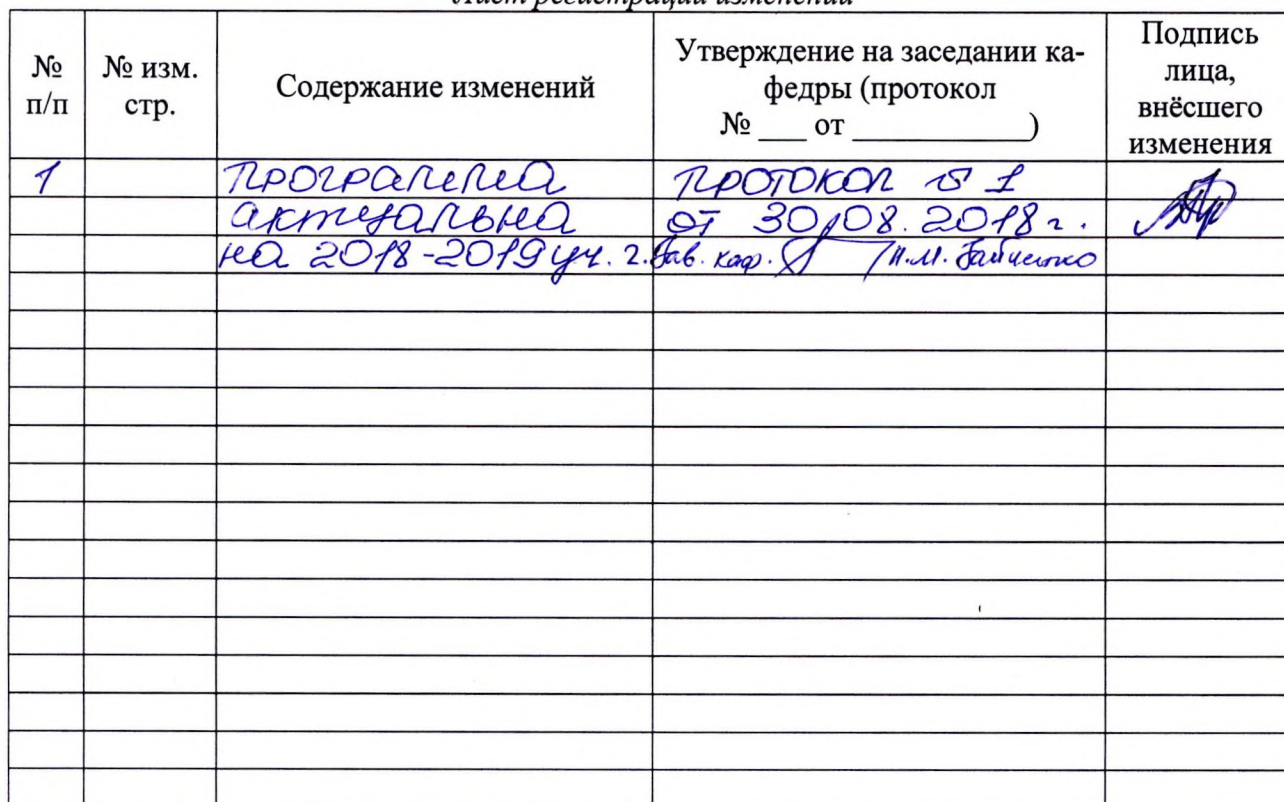 Лист регистрации изменений
№ п/п
№ изм. стр.
Содержание изменений
Утверждение на заседании ка-
федры (протокол
№ ___ от ____________)
Подпись
лица,
внёсшего
изменения
1
программа
актуальна
на 2018-2019 уч. г.
протокол № 1
от 30.08.2018 г.
Зав. каф.